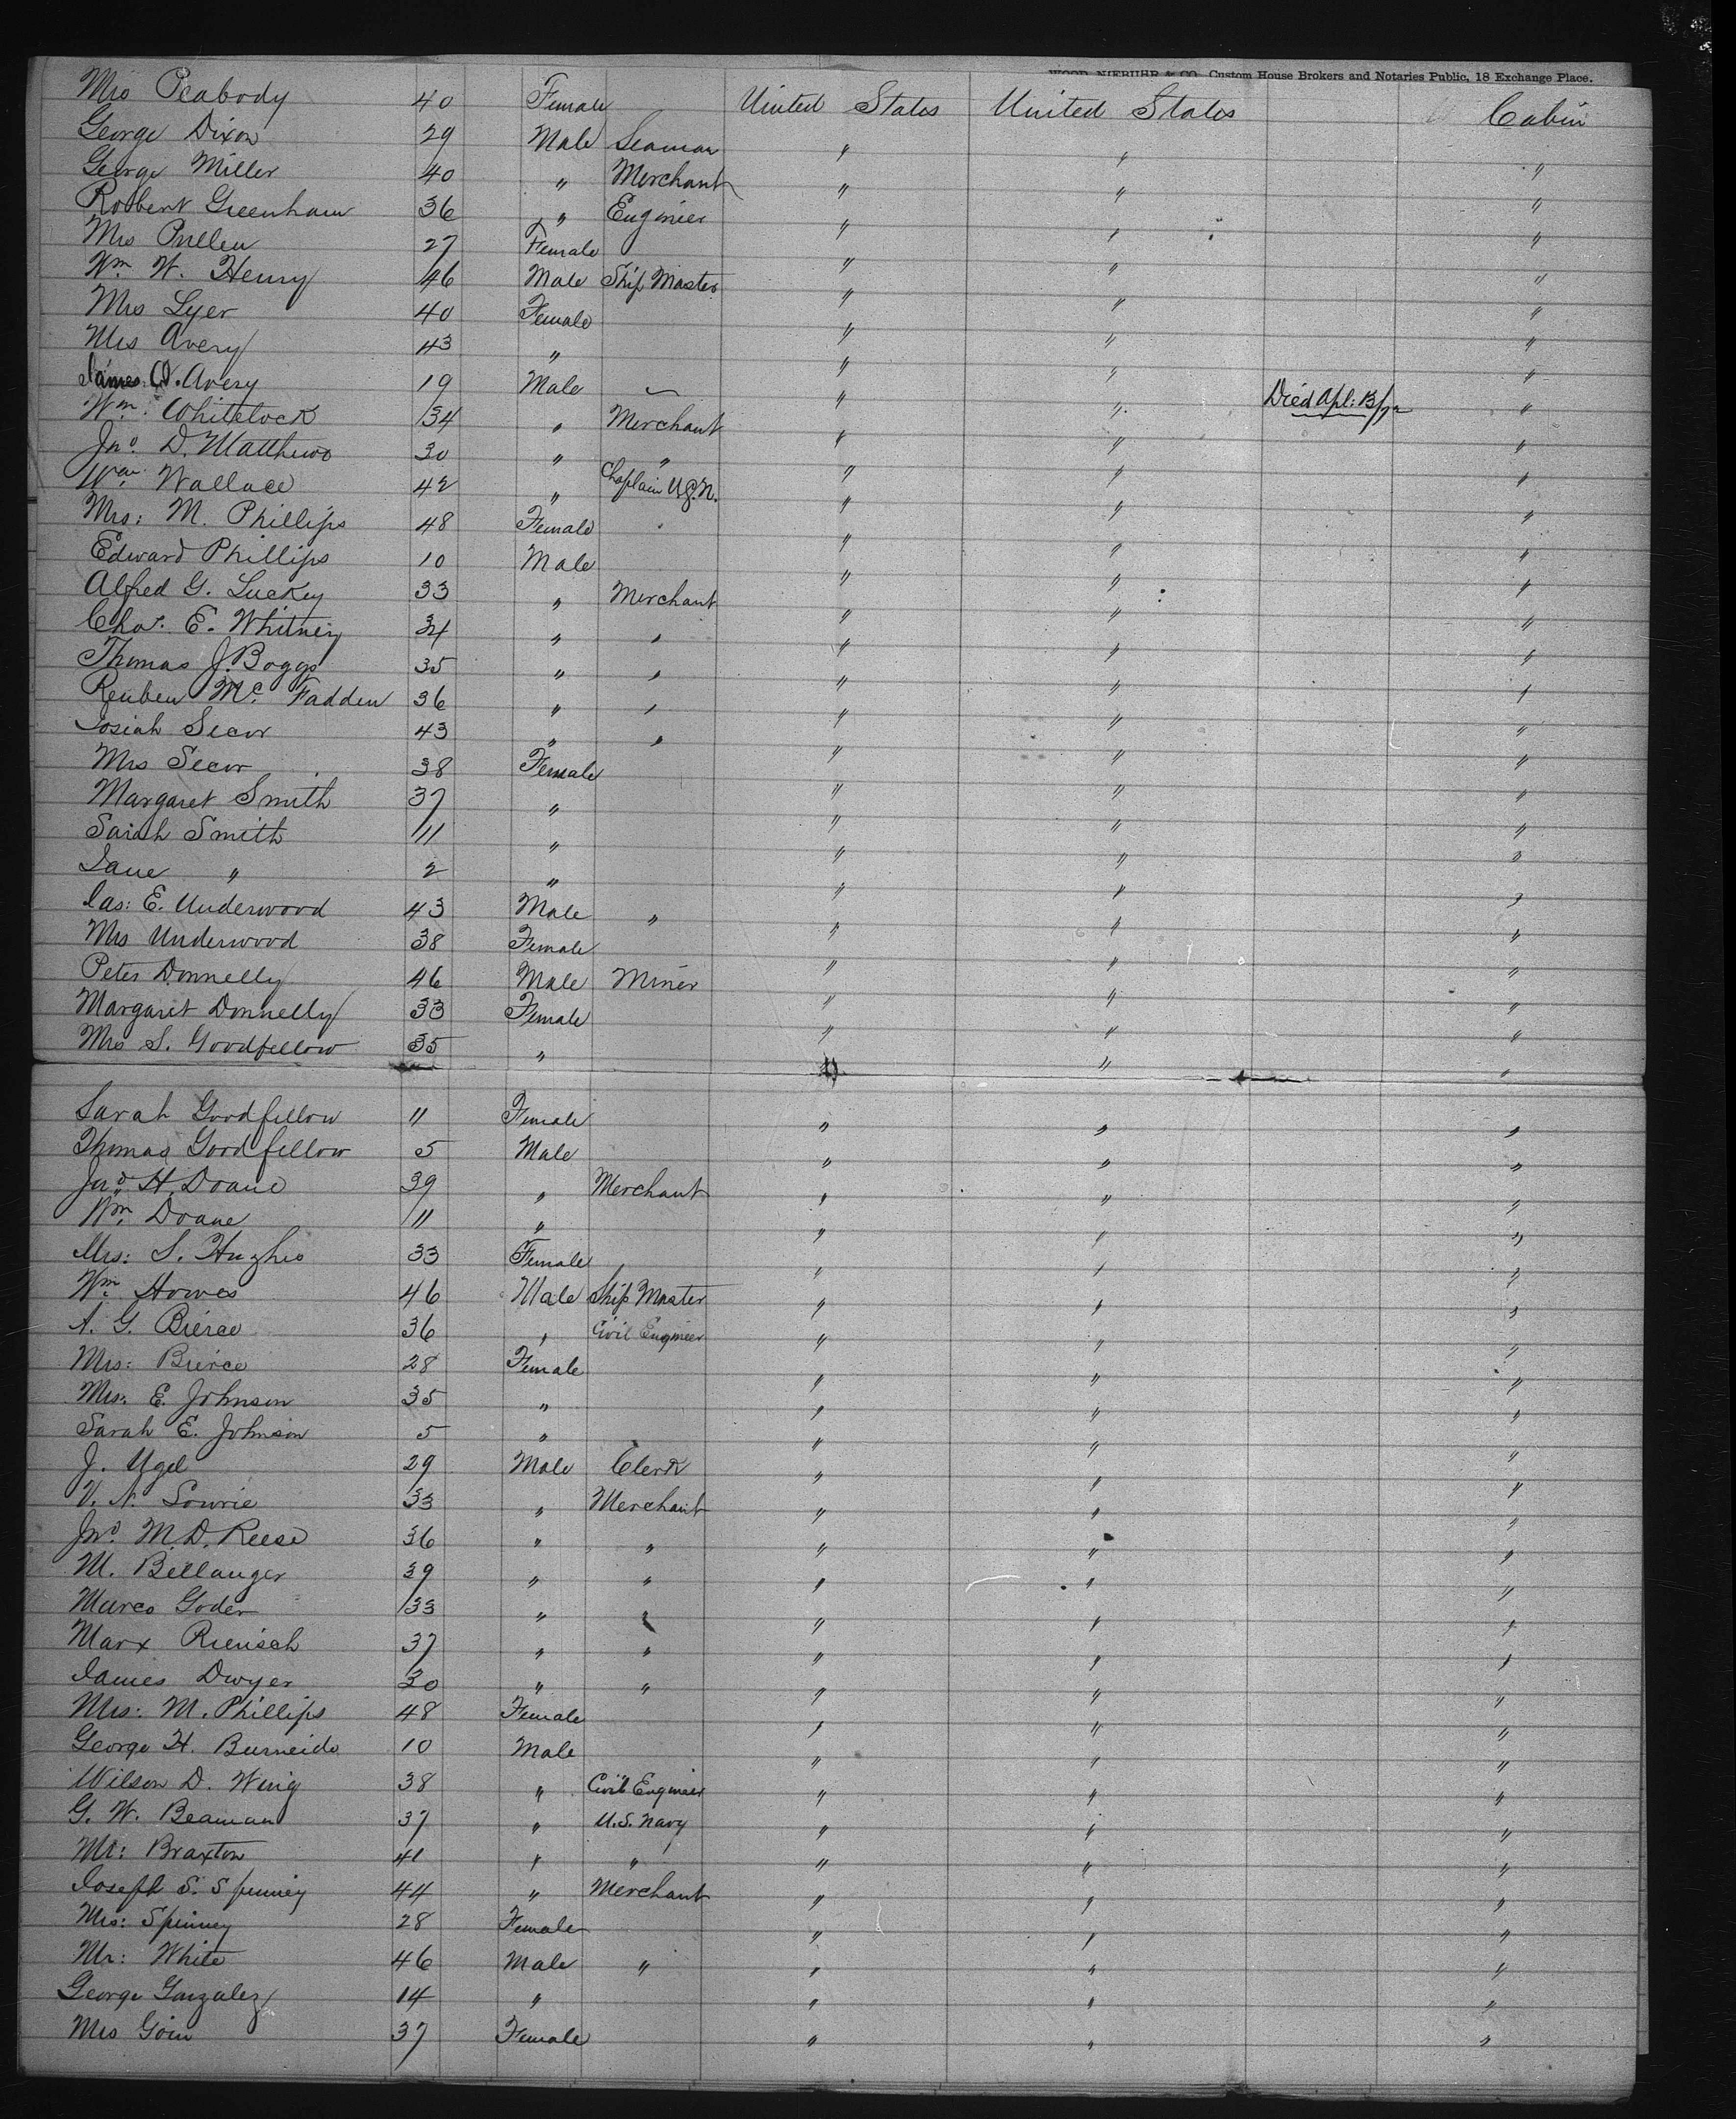 WOOD, NIEBUHR & CO., Custom House Brokers and Notaries Public, 18 Exchange Place.
Mrs Peabody 40 Female United States United States Cabin
George Dixon 29 Male Seaman " " "
George Miller 40 " Merchant " " "
Robert Greenham 36 " Engineer " " "
Mrs Pullen 27 Female " " "
Wm. W. Henry 46 Male Ship Master " " "
Mrs Lyer 40 Female " " "
Mrs Avery 43 " " " "
James O. Avery 19 Male " " Died Apl: 13/72 "
Wm. Whitelock 34 " Merchant " " "
Jno. D. Matthews 30 " " " " "
Wm. Wallace 42 " Chaplain U.S.N. " " "
Mrs: M. Phillips 48 Female " " "
Edward Phillips 10 Male " " "
Alfred G. Luckey 33 " Merchant " " "
Chas. E. Whitney 34 " " " " "
Thomas J. Boggs 35 " " " " "
Reuben Mc. Fadden 36 " " " " "
Josiah Secor 43 " " " " "
Mrs Secor 38 Female " " "
Margaret Smith 37 " " " "
Sarah Smith 11 " " " "
Jane " 2 " " " "
Jas: E. Underwood 43 Male " " " "
Mrs Underwood 38 Female " " "
Peter Donnelly 46 Male Miner " " "
Margaret Donnelly 33 Female " " "
Mrs S. Goodfellow 35 " " " "
Sarah Goodfellow 11 Female " " "
Thomas Goodfellow 5 Male " " "
Jno. H. Doane 39 " Merchant " " "
Wm. Doane 11 " " " "
Mrs: S. Hughes 33 Female " " "
Wm. Howes 46 Male Ship Master " " "
A. G. Bierce 36 " Civil Engineer " " "
Mrs: Bierce 28 Female " " "
Mrs: E. Johnson 35 " " " "
Sarah E. Johnson 5 " " " "
J. Ygel 29 Male Clerk " " "
V. N. Lowrie 33 " Merchant " " "
Jno. M. D. Reese 36 " " " " "
M. Bellanger 39 " " " " "
Marco Goder 33 " " " " "
Marx Rienisch 37 " " " " "
James Dwyer 30 " " " " "
Mrs: M. Phillips 48 Female " " "
George H. Burneide 10 Male " " "
Wilson D. Wing 38 " Civil Engineer " " "
G. W. Beaman 37 " U.S. Navy " " "
Mr: Braxton 41 " " " " "
Joseph S. Spinney 44 " Merchant " " "
Mrs: Spinney 28 Female " " "
Mr: White 46 Male " " " "
George Gonzalez 14 " " " "
Mrs Goin 37 Female " " "